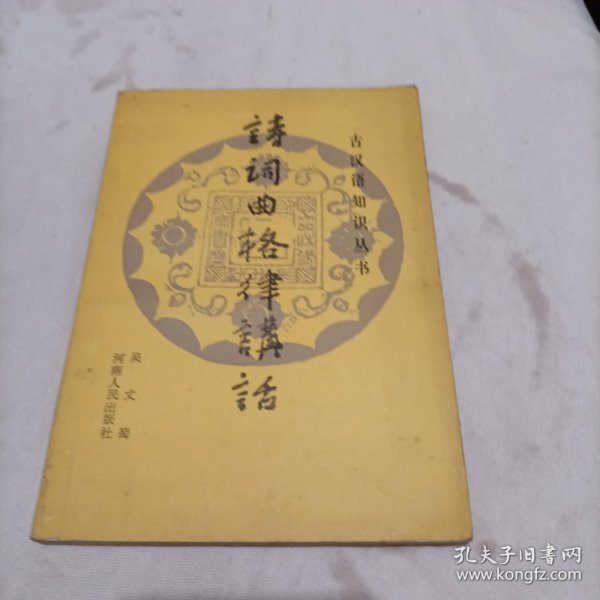 古汉语知识丛书
詩词曲格律講話
吴文蜀
河南人民出版社
孔夫子旧书网
www.kongfz.com